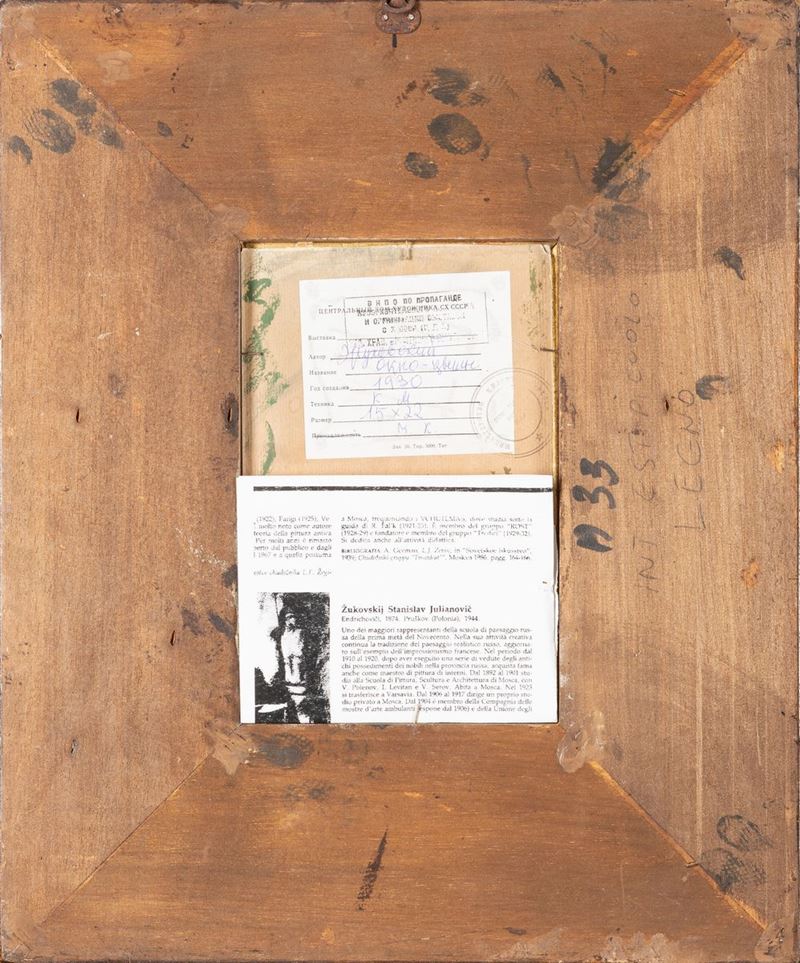 ВНПО ПО ПРОПАГАНДЕ
ЦЕНТРАЛЬНЫЙ ДОМ ХУДОЖНИКА СХ СССР
Выставка
Автор Жуковский
Название Окно-цветы
Год создания 1930
Техника К. М
Размер 15×22
Принадлежность М К
N 33
INT ESTA COOLO
LEGNO
(1922), Parigi (1925), Ve-
teoria della pittura antica
Per molti anni è rimasto
serito dal pubblico e dagli
l 1967 e a quella postuma
a Mosca, frequentando i VCHUTEMAS, dove studia sotto la
guida di R. Fal'k (1921-25). È membro del gruppo "ROST"
(1928-29) e fondatore e membro del gruppo "Tredici" (1929-32).
Si dedica anche all'attività didattica.
BIBLIOGRAFIA: A. German, in "Sovetskoe Iskusstvo",
Moskva 1986, pagg. 164-166.
Žukovskij Stanislav Julianovič
Endrichoviči, 1874. Pruškov (Polonia), 1944.
Uno dei maggiori rappresentanti della scuola di paesaggio rus-
sa della prima metà del Novecento. Nella sua attività creativa
continua la tradizione del paesaggio realistico russo, aggiorna-
to sull'esempio dell'impressionismo francese. Nel periodo dal
1910 al 1920, dopo aver eseguito una serie di vedute degli anti-
chi possedimenti dei nobili nella provincia russa, acquista fama
anche come maestro di pittura di interni. Dal 1892 al 1901 stu-
dia alla Scuola di Pittura, Scultura e Architettura di Mosca, con
V. Polenov, I. Levitan e V. Serov. Abita a Mosca. Nel 1923
si trasferisce a Varsavia. Dal 1906 al 1917 dirige un proprio stu-
dio privato a Mosca. Dal 1904 è membro della Compagnia delle
mostre d'arte ambulanti (espone dal 1906) e della Unione degli